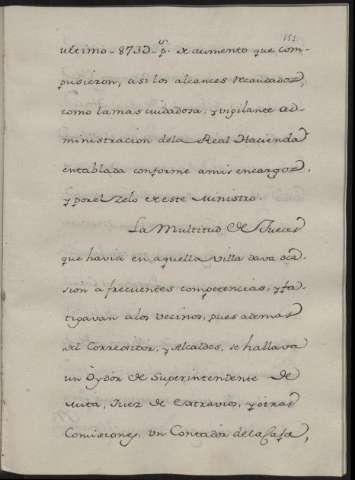 151
ultimo - 8730 - p.ˢ de aumento que com-
pusieron, asi los alcances recaudados,
como la mas cuidadosa, y vigilante Ad-
ministracion dela Real Hacienda
entablada conforme amis encargos,
y por el Zelo de este Ministro.
La Multitud de Jueces
que havia en aquella Villa dava oca-
sion a frecuentes competencias, y fa-
tigavan alos vecinos, pues ademas
del Corregidor, y Alcaldes, se hallava
un Oydor de Superintendente de
Mita, Juez de Extravios, y otras
Comisiones, un Contador de la Casa,